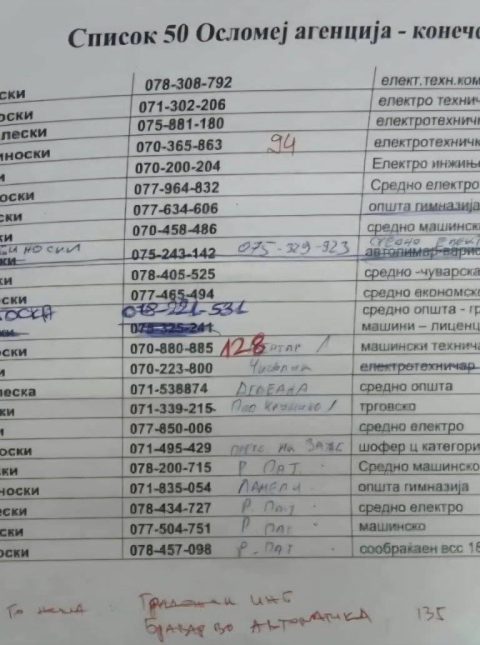 Список 50 Осломеј агенција - конеч
ски 078-308-792 елект.техн.ком
оски 071-302-206 електро технич
лески 075-881-180 електротехничк
иноски 070-365-863 94 електротехничк
и 070-200-204 Електро инжиње
оски 077-964-832 Средно електро
и 077-634-606 општа гимназија
оски 070-458-486 средно машинск
иноски 075-329-923 средно елект
ки 075-243-142 автолимар-варис
и 078-405-525 средно -чуварска
ки 077-465-494 средно економско
оска 078-221-531 средно општа - гр
ки 075-325-241 машини – лиценц
ски 070-880-885 128 / машински технича
070-223-800 електротехничар
леска 071-538874 средно општа
ки 071-339-215 / трговско
и 077-850-006 средно електро
оски 071-495-429 на шофер ц категори
078-200-715 Р. ПАТ Средно машинско
носки 071-835-054 ЛАМЕЛИ општа гимназија
и 078-434-727 Р. ПАТ средно електро
оски 077-504-751 Р ПАТ машинско
оски 078-457-098 Р. ПАТ сообраќаен всс 18
То :
во АВТОМАТИКА 135